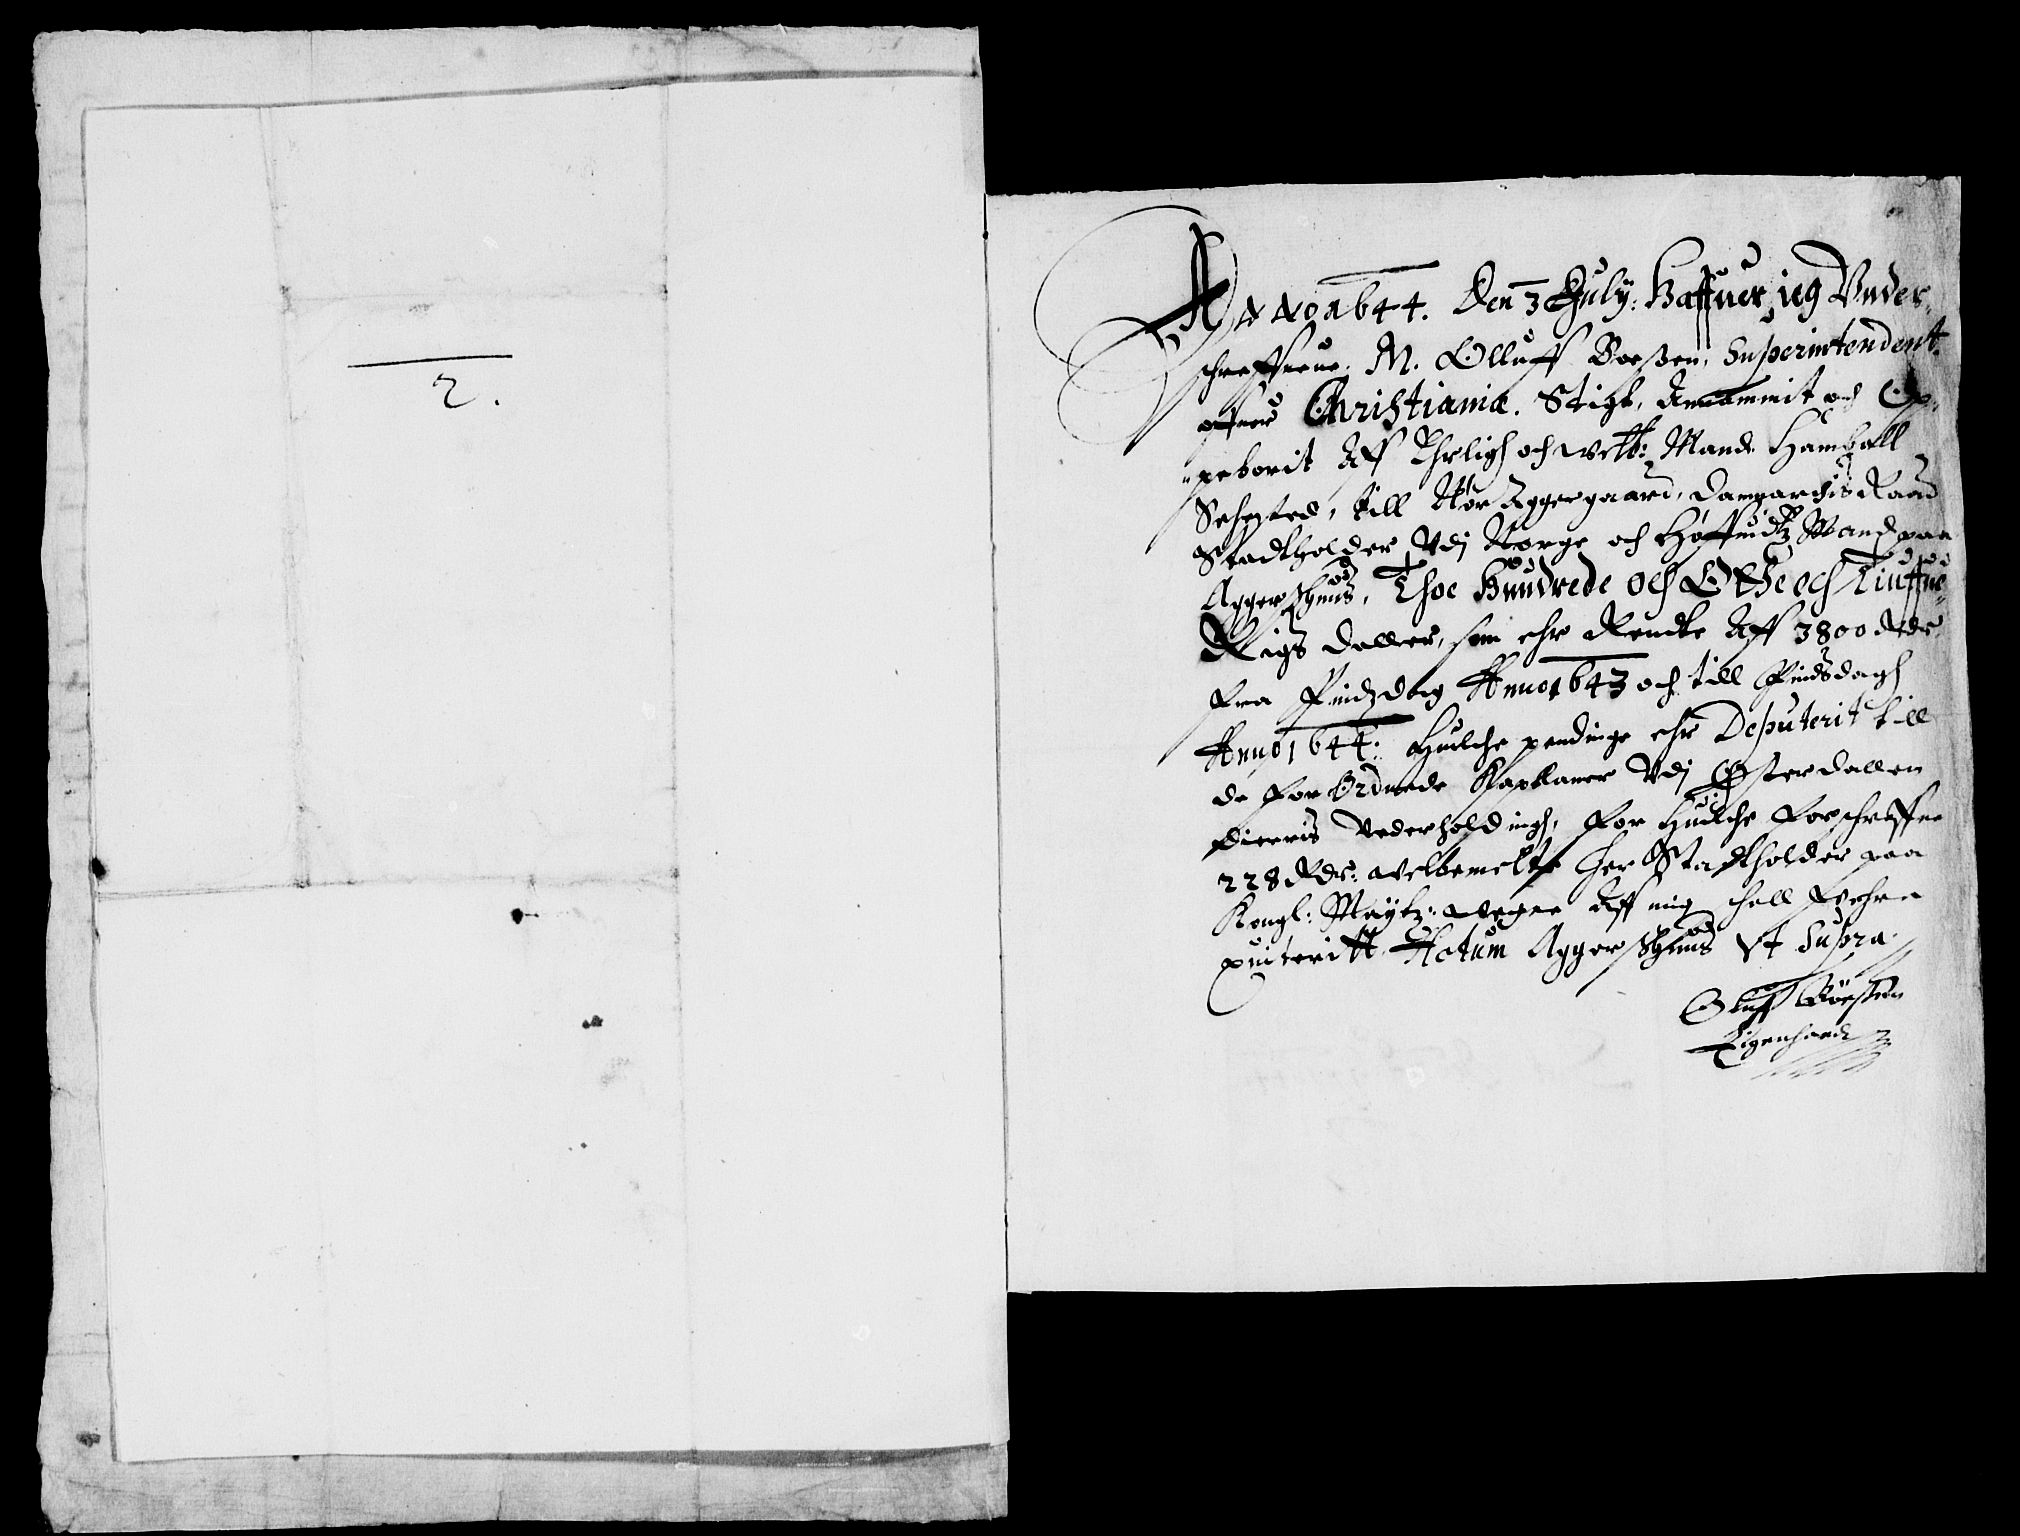 2.
Anno 1644. Den 3 July: Haffuer ieg Vnder-
schreffne M. Olluff Boeßen, Superintendent
offuer Christianiæ Stigt, Annammit och Op-
peborit Aff Ehrligh och Welb: Mand Hanniball
Sehested, till Nør Aggergaard, Danmarchis Raad
Stadtholder Vdj Norge och Høffuidtz Mand paa
Aggershuus, Thoe Hundrede Och Otte och Tiuffue
Rigs Daller, som ehr Rendte Aff 3800 Rdr
fra Pindzdag Anno 1643 och till Pindsdagh
Anno 1644: Huilche pendinge ehr Deputerit till
de forordnede Kapelaner Vdj Østerdallen
dieris Vederholdingh, for Huilche forschreffne
228 Rdr: Velbemelte Her Stadtholder paa
Kongl: Maytz: Vegne Aff mig schall Vehre
quiterit. Actum Aggershuus Vt Supra.
Oluff Böeßen
Eigenhandt